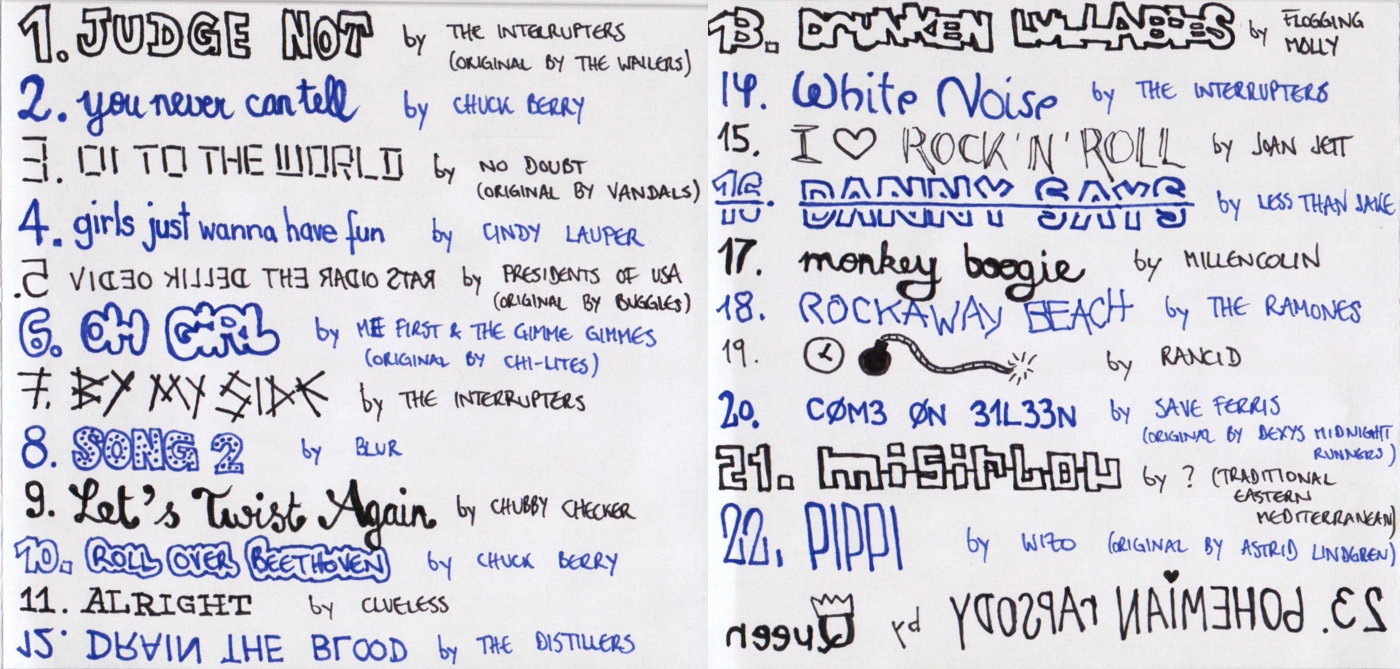 1. JUDGE NOT by THE INTERRUPTERS
(ORIGINAL BY THE WAILERS)
2. you never can tell by CHUCK BERRY
3. OI TO THE WORLD by NO DOUBT
(ORIGINAL BY VANDALS)
4. girls just wanna have fun by CINDY LAUPER
5. VIDEO KILLED THE RADIO STAR by PRESIDENTS OF USA
(ORIGINAL BY BUGGLES)
6. OH GIRL by ME FIRST & THE GIMME GIMMES
(ORIGINAL BY CHI-LITES)
7. BY MY SIDE by THE INTERRUPTERS
8. SONG 2 by BLUR
9. Let's Twist Again by CHUBBY CHECKER
10. ROLL OVER BEETHOVEN by CHUCK BERRY
11. ALRIGHT by CLUELESS
12. DRAIN THE BLOOD by THE DISTILLERS
13. DRUNKEN LULLABIES by FLOGGING
MOLLY
14. White Noise by THE INTERRUPTERS
15. I ♡ ROCK'N'ROLL by JOAN JETT
16. DANNY SAYS by LESS THAN JAKE
17. monkey boogie by MILLENCOLIN
18. ROCKAWAY BEACH by THE RAMONES
19. by RANCID
20. CØM3 ØN 31L33N by SAVE FERRIS
(ORIGINAL BY DEXYS MIDNIGHT
RUNNERS)
21. misirlou by ? (TRADITIONAL
EASTERN
MEDITERRANEAN)
22. PIPPI by WIZO (ORIGINAL BY ASTRID LINDGREN)
23. bOHEMIAN rAPSODY by Queen